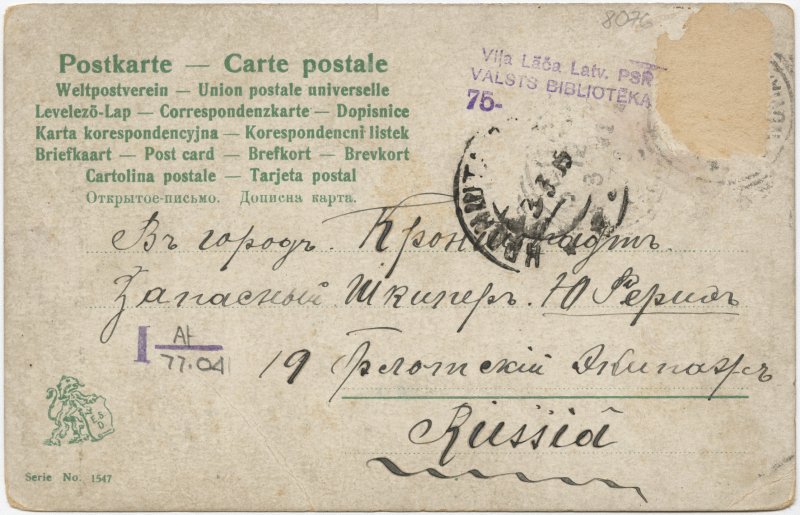 8076
Postkarte — Carte postale
Weltpostverein — Union postale universelle
Levelezö-Lap — Correspondenzkarte — Dopisnice
Karta korespondencyjna — Korespondencni listek
Briefkaart — Post card — Brefkort — Brevkort
Cartolina postale — Tarjeta postal
Открытое-письмо. Дописна карта.
Viļa Lāča Latv. PSR
VALSTS BIBLIOTĒKA
75-
3.3.15
Въ городъ. Кронштадтъ.
Запасный Шкиперъ. Ю
19 Флотскій Экипажъ
Russiâ
I
77.04
Serie No. 1547